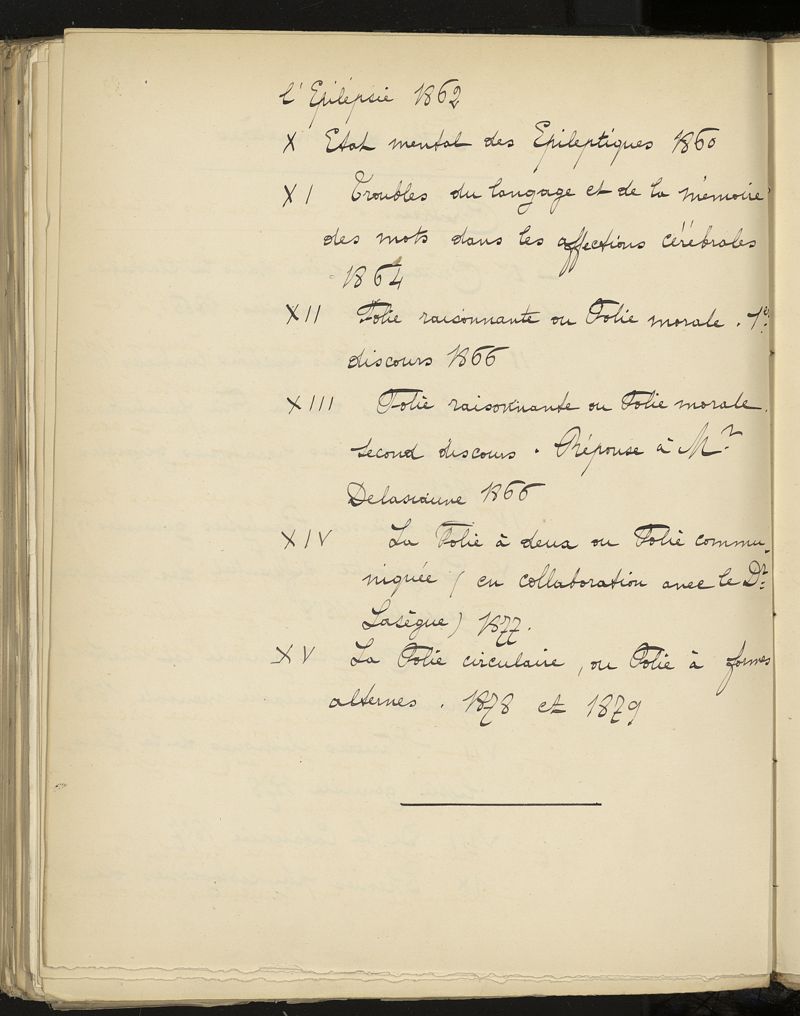 l'Epilépsie 1862
X Etat mental des Epileptiques 1860
XI Troubles du langage et de la mémoire
des mots dans les affections cérébrales
1864
XII Folie raisonnante ou Folie morale. 1er
discours 1866
XIII Folie raisonnante ou Folie morale.
second discours. Réponse à Mr
Delasiauve 1866
XIV La Folie à deux ou Folie commu-
niquée (en collaboration avec le Dr
Lasègue) 1877.
XV La Folie circulaire, ou Folie à formes
alternes. 1878 et 1879